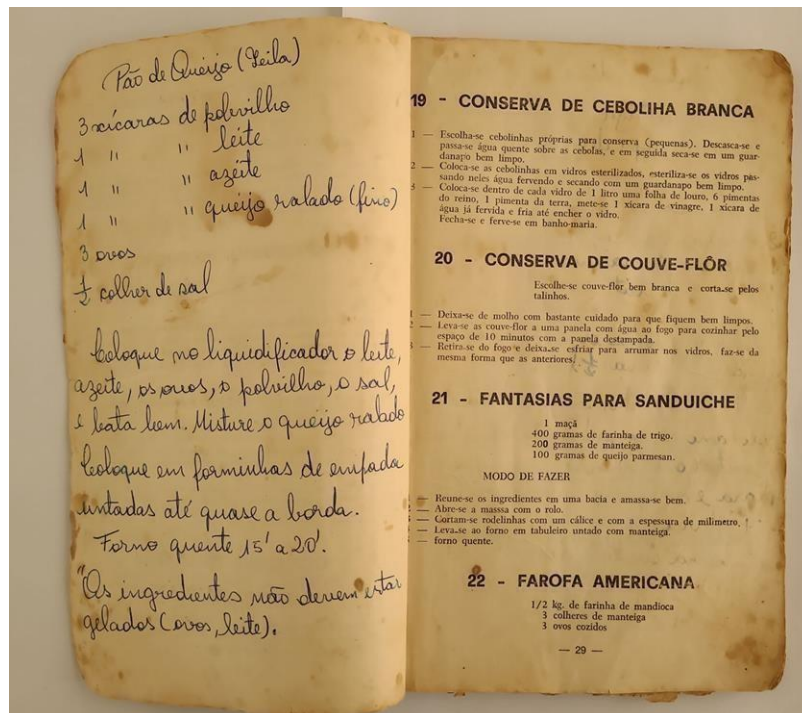 Pão de Queijo (Leila)
3 xícaras de polvilho
1 " " leite
1 " " azeite
1 " " queijo ralado (fino)
3 ovos
½ colher de sal
Coloque no liquidificador o leite,
azeite, os ovos, o polvilho, o sal,
e bata bem. Misture o queijo ralado
Coloque em forminhas de empada
untadas até quase a borda.
Forno quente 15' a 20'.
"Os ingredientes não devem estar
gelados (ovos, leite).
19 - CONSERVA DE CEBOLIHA BRANCA
1 — Escolha-se cebolinhas próprias para conserva (pequenas). Descasca-se e
passa-se água quente sobre as cebolas, e em seguida seca-se em um guar-
danapo bem limpo.
2 — Coloca-se as cebolinhas em vidros esterilizados, esteriliza-se os vidros pas-
sando neles água fervendo e secando com um guardanapo bem limpo.
3 — Coloca-se dentro de cada vidro de 1 litro uma folha de louro, 6 pimentas
do reino, 1 pimenta da terra, mete-se 1 xicara de vinagre, 1 xicara de
água já fervida e fria até encher o vidro.
Fecha-se e ferve-se em banho-maria.
20 - CONSERVA DE COUVE-FLÔR
Escolhe-se couve-flor bem branca e corta-se pelos
talinhos.
— Deixa-se de molho com bastante cuidado para que fiquem bem limpos.
— Leva-se as couve-flor a uma panela com água ao fogo para cozinhar pelo
espaço de 10 minutos com a panela destampada.
— Retira-se do fogo e deixa-se esfriar para arrumar nos vidros, faz-se da
mesma forma que as anteriores.
21 - FANTASIAS PARA SANDUICHE
1 maçã
400 gramas de farinha de trigo.
200 gramas de manteiga.
100 gramas de queijo parmesan.
MODO DE FAZER
— Reune-se os ingredientes em uma bacia e amassa-se bem.
— Abre-se a masssa com o rolo.
— Cortam-se rodelinhas com um cálice e com a espessura de milimetro.
— Leva-se ao forno em tabuleiro untado com manteiga.
— forno quente.
22 - FAROFA AMERICANA
1/2 kg. de farinha de mandioca
3 colheres de manteiga
3 ovos cozidos
— 29 —